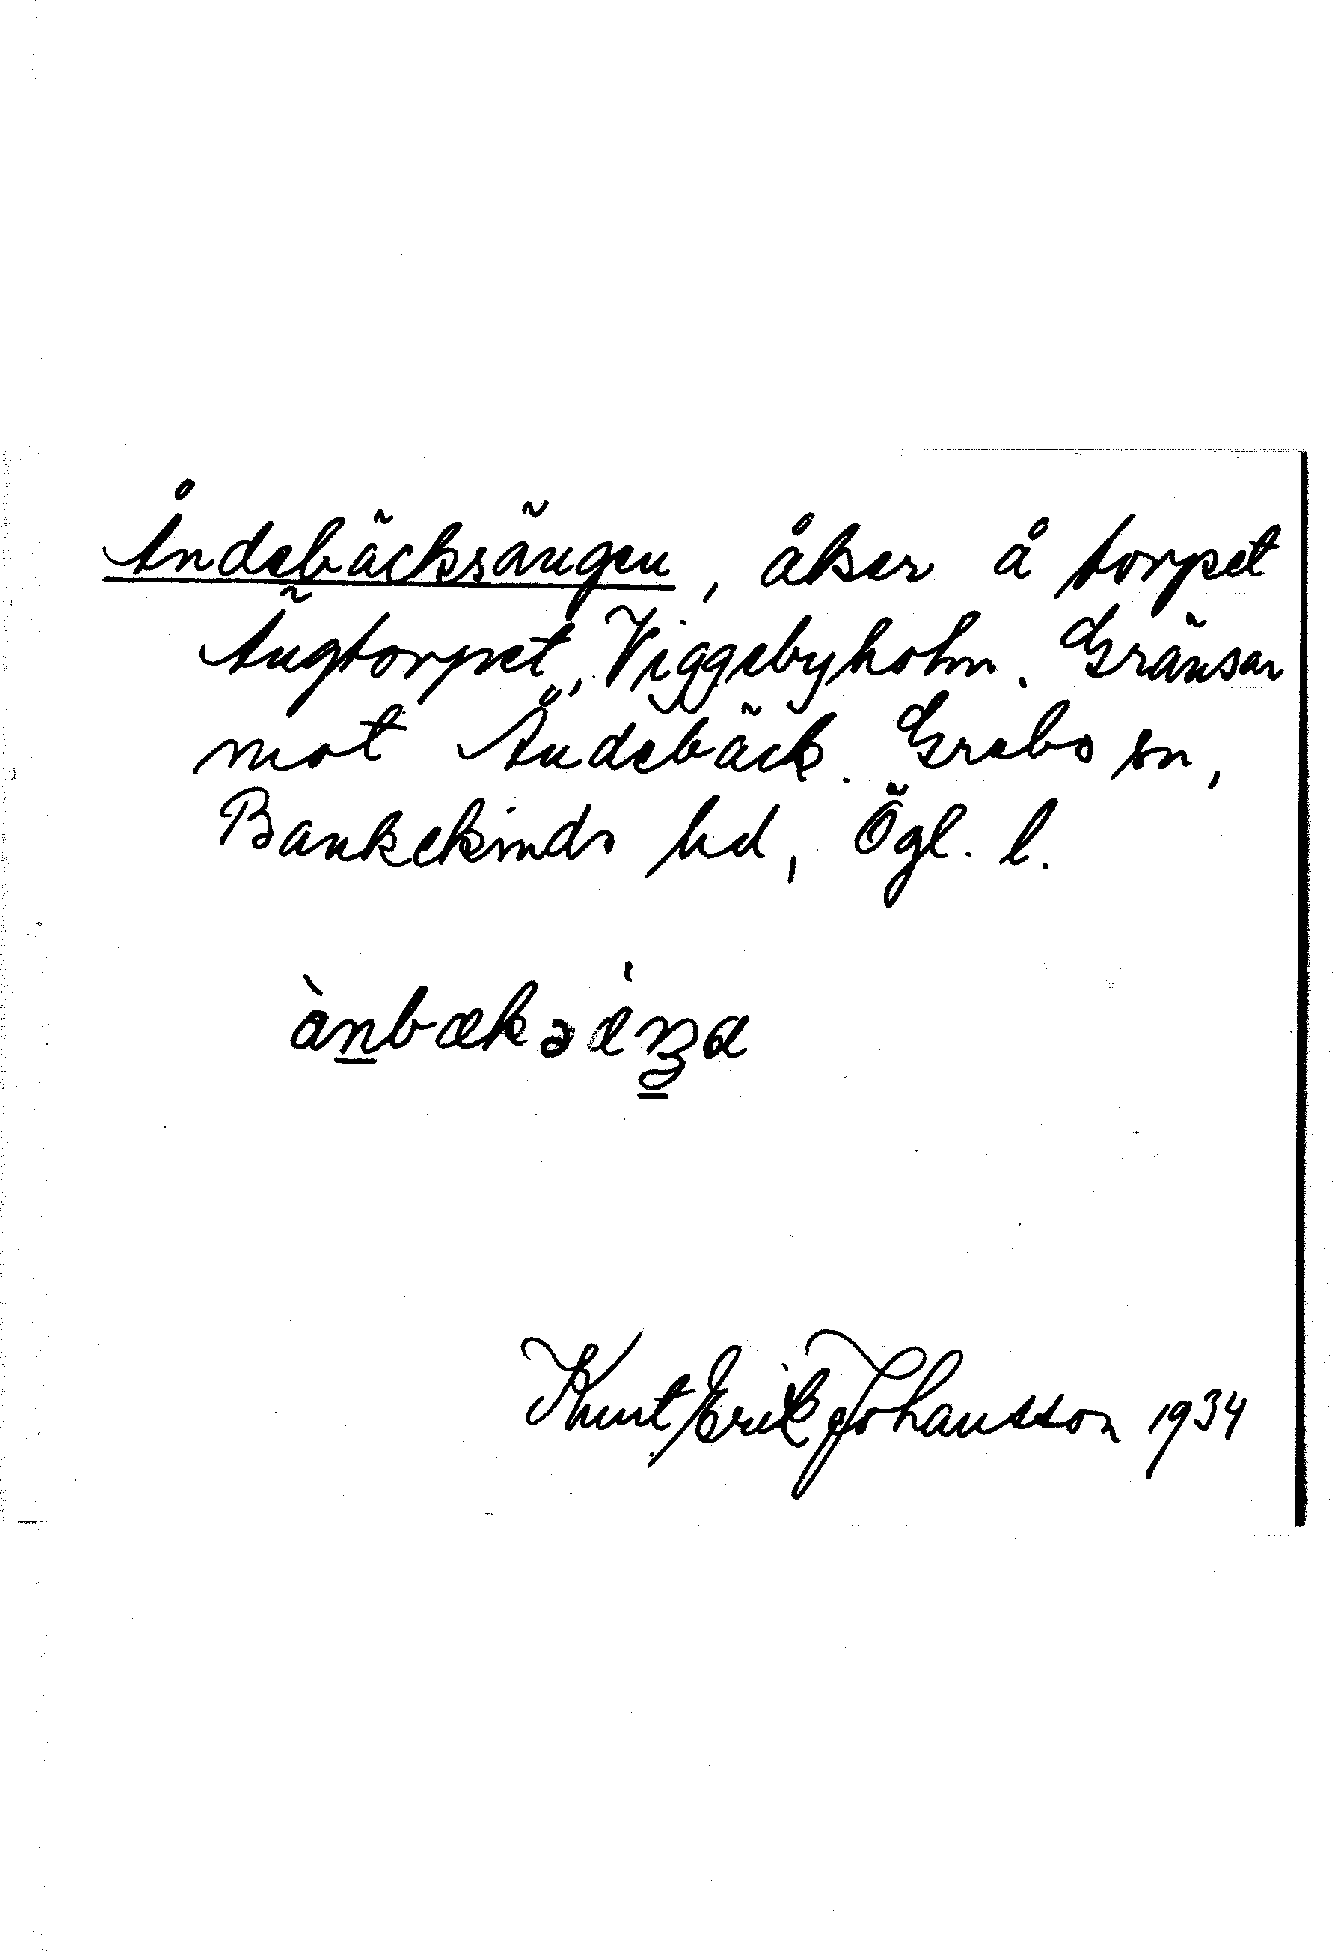 Åndebäcksängen, åker å torpet
Ängtorpet, Viggebyholm. Gränsar
mot Ändebäck. Grebo sn,
Bankekinds hd, Ögl. l.
Knut Erik Johansson 1934